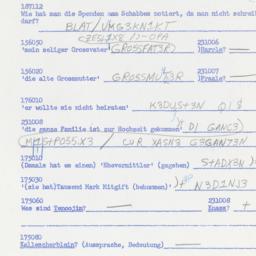 187112
Wie hat man die Spenden am Schabbes notiert, da man nicht schrei
darf?
BLAT/UMG3KN1KT
156030
'mein seliger Grosvater' (GROSFAT3R)
231006
)Harele?
156020
'die alte Grosmutter' GROSMUT3R
231007
)Fraale?
176010
'er wollte sie nicht heiraten' K3DUST3N
231008
'die ganze Familie ist zur Hochzeit gekommen' (DI GANC3)
MISHPOSS1X3 / CUR XASN3 G3GANT3N
175010
(Damals hat es einen) 'Ehevermittler' (gegeben) STADX3N
175030
'(sie hat)Tausend Mark Mitgift (bekommen)' N3D1NJ3
175060
Was sind Tenoojim?
231008
Knass?
175080
Kallescherblein? (Aussprache, Bedeutung)